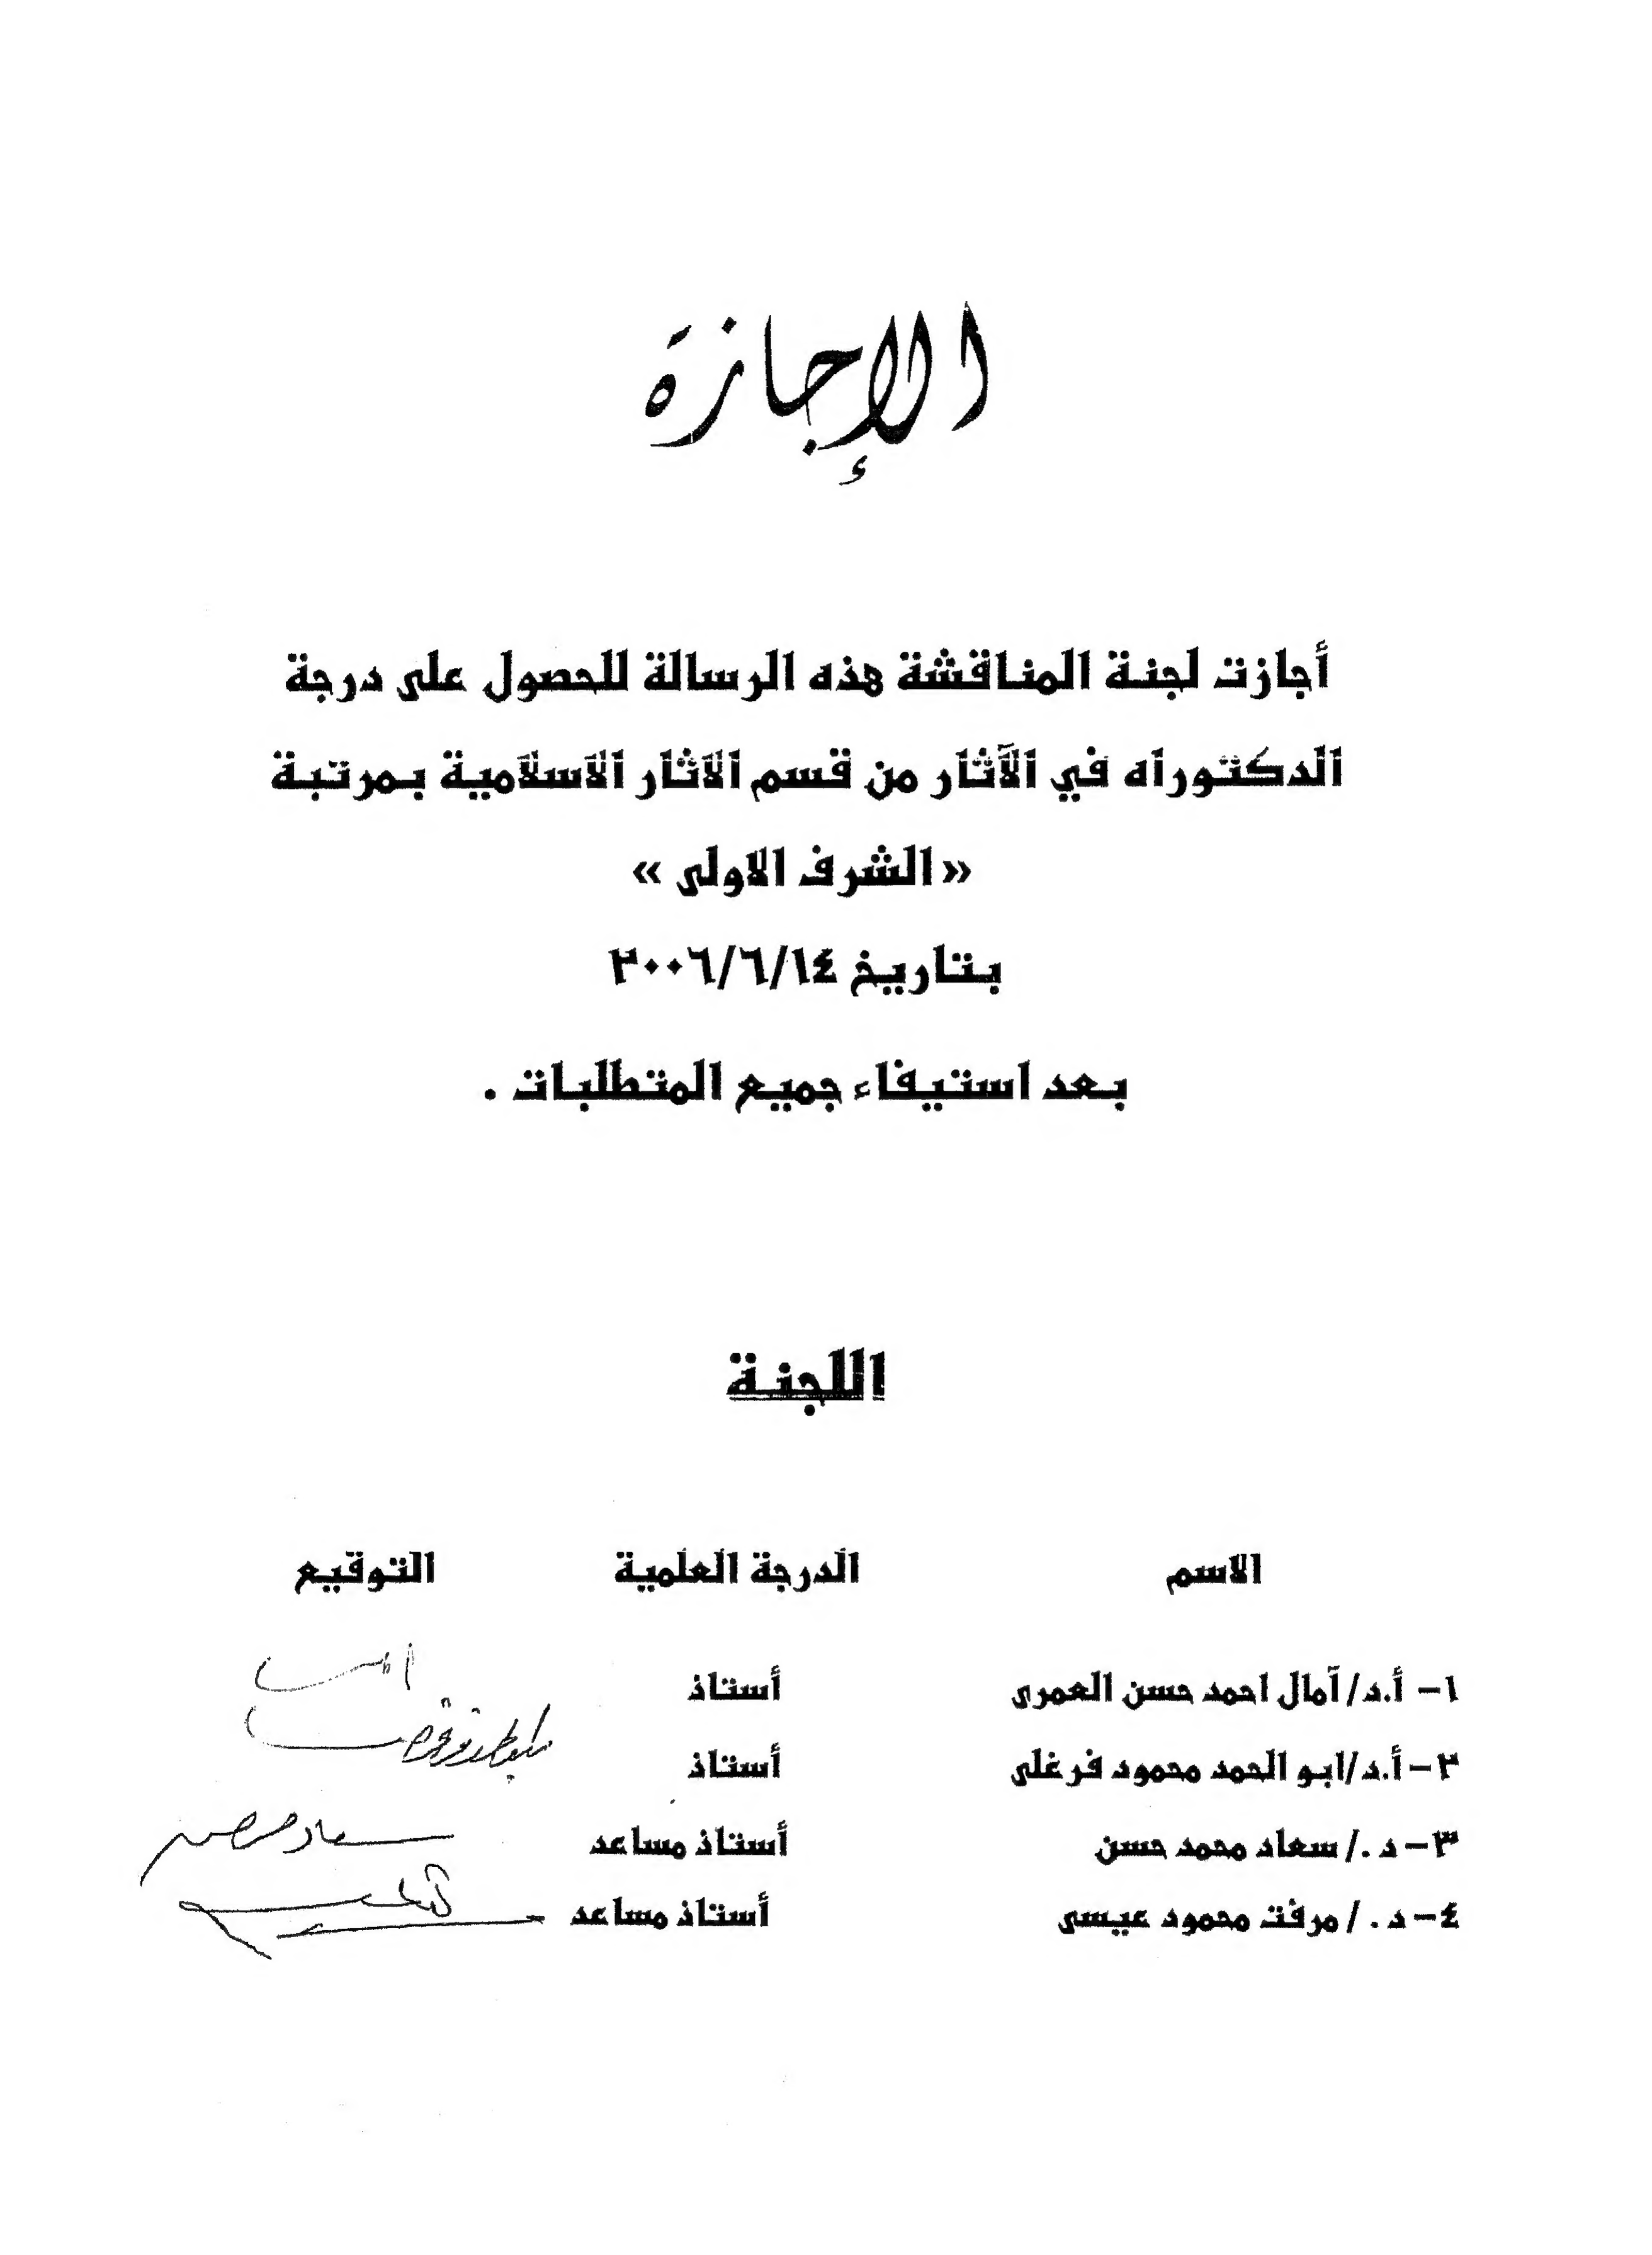 الإجازة
أجازت لجنة المناقشة هذه الرسالة للحصول على درجة
الدكتوراه في الآثار من قسم الاثار الاسلامية بمرتبة
« الشرف الاولى »
بتاريخ ٢٠٠٦/٦/١٤
بعد استيفاء جميع المتطلبات .
اللجنة
الاسم الدرجة العلمية التوقيع
١- أ.د/ آمال احمد حسن العمرى أستاذ
٢- أ.د/ابو الحمد محمود فرغلى أستاذ
٣- د ./ سعاد محمد حسن أستاذ مساعد
٤- د . / مرفت محمود عيسى أستاذ مساعد